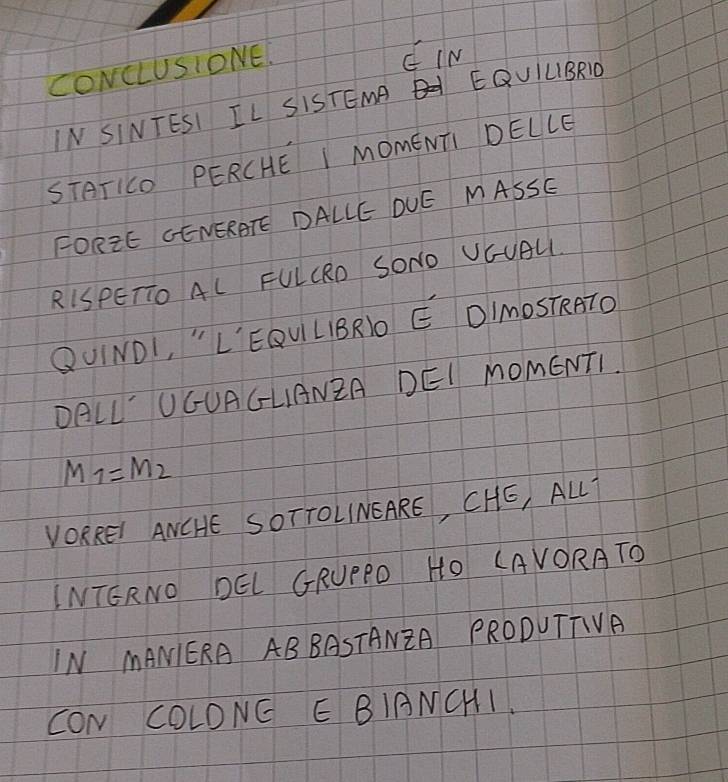 CONCLUSIONE.
IN SINTESI IL SISTEMA É IN EQUILIBRIO
STATICO PERCHÉ I MOMENTI DELLE
FORZE GENERATE DALLE DUE MASSE
RISPETTO AL FULCRO SONO UGUALI.
QUINDI, "L'EQUILIBRIO É DIMOSTRATO
DALL' UGUAGLIANZA DEI MOMENTI.
M1=M2
VORREI ANCHE SOTTOLINEARE, CHE, ALL'
INTERNO DEL GRUPPO HO LAVORATO
IN MANIERA ABBASTANZA PRODUTTIVA
CON COLONE E BIANCHI.